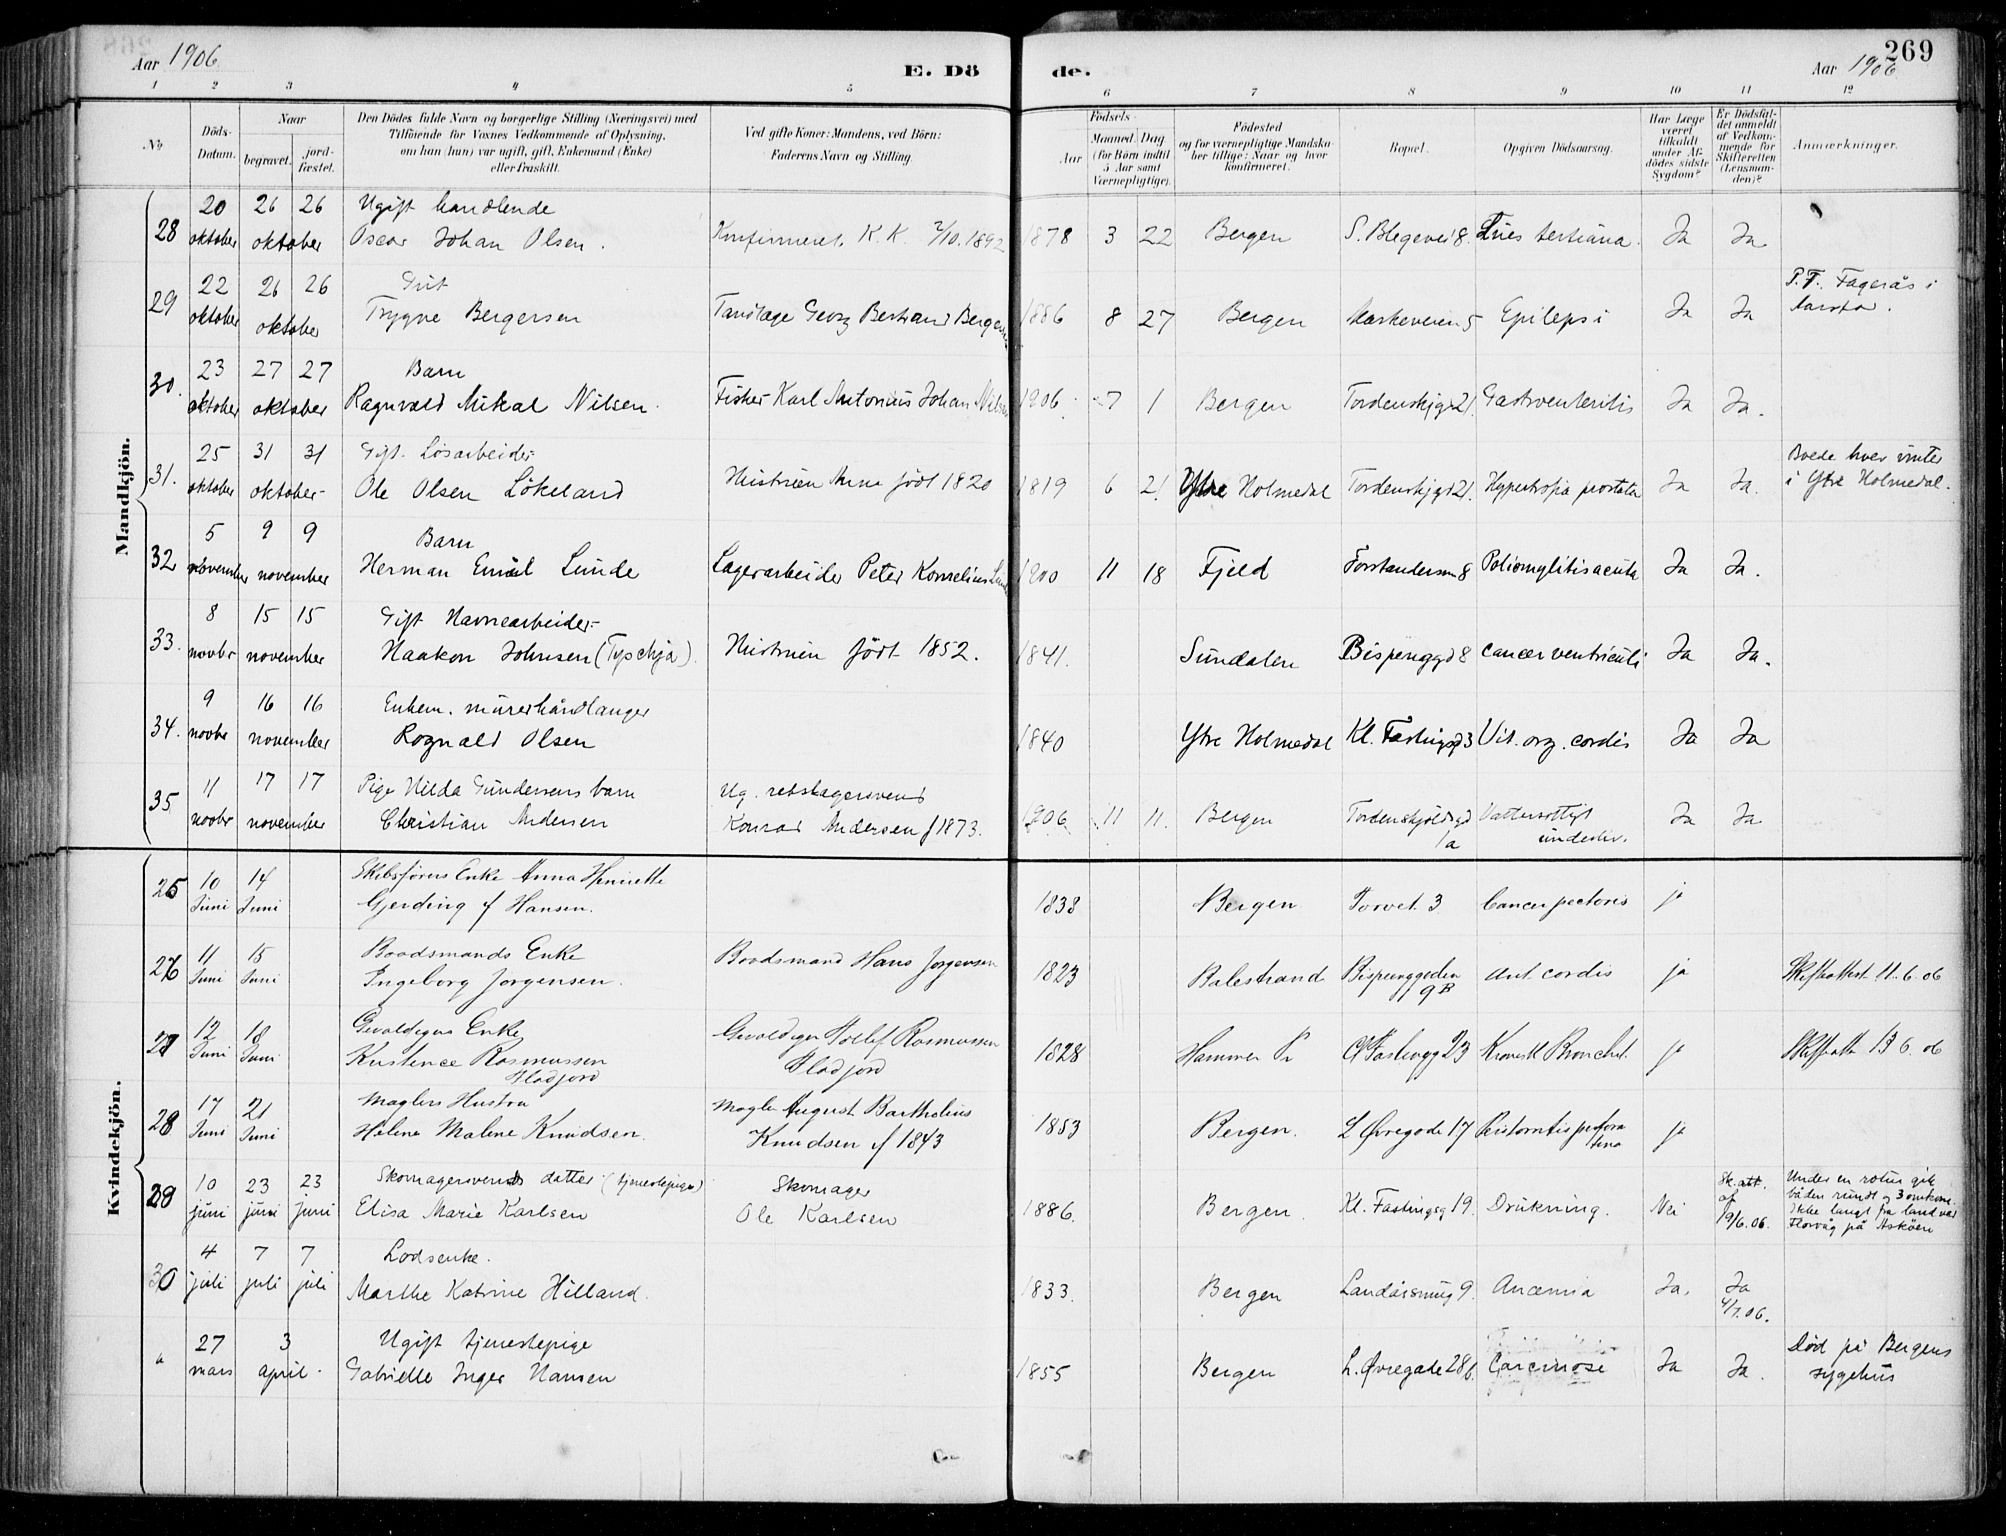 Aar 1906
E. Dö
de.
Aar 1906
269
1 2 3 4 5 6 7 8 9 10 11 12
No
Döds-Datum.
Naar
begravet.
jord-fæstet.
Den Dödes fulde Navn og borgerlige Stilling (Næringsvei) med
Tilföiende for Voxnes Vedkommende af Oplysning,
om han (hun) var ugift, gift, Enkemand (Enke)
eller fraskilt.
Ved gifte Koner: Mandens, ved Börn:
Faderens Navn og Stilling.
Födsels-
Aar
Maaned. Dag
(for Börn indtil
5 Aar samt
Værnepligtige).
Födested
og for værnepligtige Mandska-
ber tillige: Naar og hvor
konfirmeret.
Bopæl.
Opgiven Dödsaarsag.
Har Læge
været
tilkaldt
under Af-
dödes sidste
Sygdom?
Er Dödsfal-
det anmeldt
af Vedkom-
mende for
Skifteretten
(Lensman-
den)?
Anmærkninger.
Mandkjön.
28 20 oktober 26 26 oktober Ugift handlende
Oscar Johan Olsen. Konfirmeret K. K. 2/10. 1892 1878 3 22 Bergen S. Blegevei 8. Lues tertiana. Ja Ja
29 22 oktober 26 26 oktober
Trygve Bergersen Tandlæge Georg Bertrand Bergersen 1886 8 27 Bergen Markeveien 5 Epilepsi Ja Ja P.T. Fagerås i
30. 23 oktober 27 27 oktober Barn
Ragnvald Mikal Nilsen. Fisker Karl Antonius Johan Nilsen 1906 7 1 Bergen Tordenskjgd 21. Gastroenteritis Ja Ja.
31. 25 oktober 31 31 oktober Gift. Løsarbeider
Ole Olsen Lökeland Hustruen Anna födt 1820 1819 6 21. Ytre Holmedal Tordenskjgd 21. Hypertrofia prostata Ja Ja. Boede hver vinter
i Ytre Holmedal.
32 5 november 9 9 november Barn
Herman Emil Lunde Lagerarbeider Peter Kornelius Lunde 1900 11 18 Fjeld Forstandersm 8 Poliomylitis acuta Ja Ja.
33. 8 novbr 15 15 november Gift Havnearbeider
Haakon Johnsen (Typchja). Hustruen födt 1852. 1841. Sundalen Bispenggd 8 Cancer ventriculi Ja Ja.
34. 9 novbr 16 16 november Enkem. mürerhåndlanger
Rognald Olsen 1840 Ytre Holmedal Kl. Fastingsgd 3 Vit. org. cordis Ja Ja
35 11 novbr 17 17 november Pige Hilda Gundersens barn Ug. rebslagersvend
Christian Andersen Konrad Andersen f 1873. 1906. 11 11. Bergen Tordenskjöldsgd 1a Vattersottigt underliv. Ja Ja
Kvindekjön.
25 10 Juni 14 Juni Skibsförers Enke Anna Henriette
Gjerding f Hansen. 1838 Bergen Torvet 3 Cancer pectoris ja
26 11 Juni 15 Juni Baadsmands Enke
Ingeborg Jørgensen. Baadsmand Hans Jørgensen 1823 Balestrand Bispenggaden 9B Ant. cordis ja Skifteattest 11.6.06
27 12 Juni 18 Juni Gevaldigers Enke
Kristence Rasmussen Fladjord Gevaldiger Rasmussen Fladjord 1828 Hammer Pr Fastingg 23 Kronisk Bronchit. ja Skifteatt 13 6. 06
28 17 Juni 21 Juni Mæglers Hustru
Helene Malene Knudsen. Mægler August Barthelius
Knudsen f 1843 1853 Bergen. L Øvregade 17 Peritonitis perforativa ja
29 10 juni 23 juni 23 juni Skomagersvends datter (tjenestepige)
Elisa Marie Karlsen Skomager
Ole Karlsen 1886. Bergen. Kl. Fastingsg 19. Drukning. Nei Sk. att.
af
19/6. 06. Under en rotur gik
båden rundt og 3 omkom.
Ikke langt fra land ved
Florvåg på Asköen
30 4 juli 7 juli 7 juli Lodsenke.
Marthe Katrine Hilland. 1833. Bergen Landåssmug 9. Anæmia Ja. Ja
4/7. 06.
a 27 mars 3 april Ugift tjenestepige
Gabrielle Inger Hansen 1855 Bergen L. Øvregate 28b. Carcinose Ja Ja. Død på Bergens
sygehus